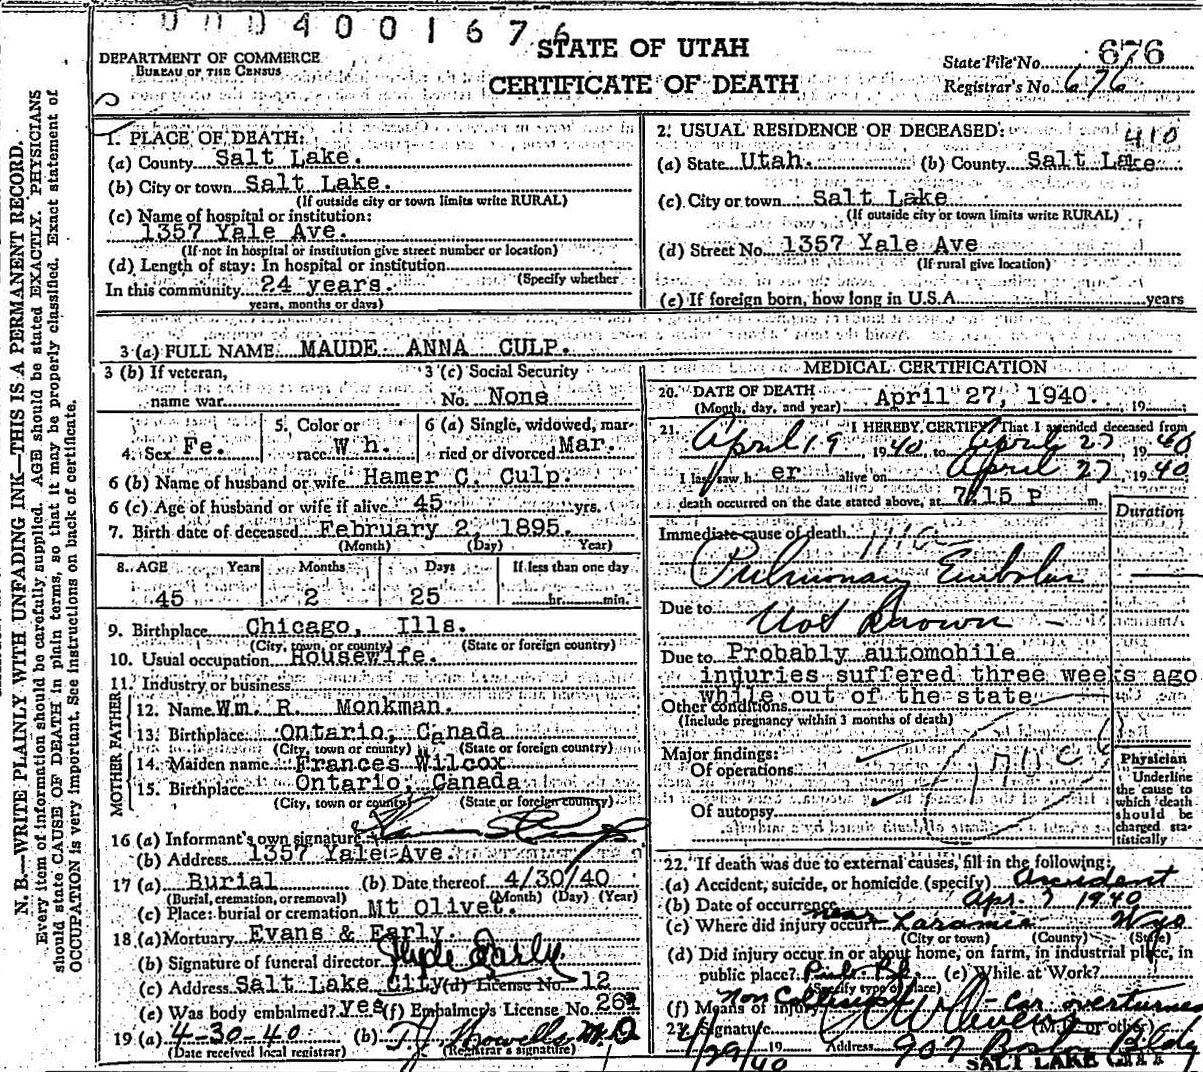 0004001676
STATE OF UTAH
CERTIFICATE OF DEATH
DEPARTMENT OF COMMERCE
BUREAU OF THE CENSUS
State File No. 676
Registrar's No. 676
N. B.—WRITE PLAINLY WITH UNFADING INK—THIS IS A PERMANENT RECORD.
Every item of information should be carefully supplied. AGE should be stated EXACTLY. PHYSICIANS
should state CAUSE OF DEATH in plain terms, so that it may be properly classified. Exact statement of
OCCUPATION is very important. See instructions on back of certificate.
1. PLACE OF DEATH:
(a) County Salt Lake.
(b) City or town Salt Lake.
(If outside city or town limits write RURAL)
(c) Name of hospital or institution:
1357 Yale Ave.
(If not in hospital or institution give street number or location)
(d) Length of stay: In hospital or institution
(Specify whether
In this community 24 years.
years, months or days)
2. USUAL RESIDENCE OF DECEASED: 410
(a) State Utah. (b) County Salt Lake
(c) City or town Salt Lake
(If outside city or town limits write RURAL)
(d) Street No. 1357 Yale Ave
(If rural give location)
(e) If foreign born, how long in U.S.A. years
3 (a) FULL NAME MAUDE ANNA CULP.
3 (b) If veteran,
name war
3 (c) Social Security
No. None
4. Sex Fe.
5. Color or
race Wh.
6 (a) Single, widowed, mar-
ried or divorced Mar.
6 (b) Name of husband or wife Hamer C. Culp.
6 (c) Age of husband or wife if alive 45 yrs.
7. Birth date of deceased February 2, 1895.
(Month) (Day) Year)
8. AGE Years Months Days If less than one day
45 2 25 hr. min.
9. Birthplace Chicago, Ills.
(City, town, or county) (State or foreign country)
10. Usual occupation Housewife.
11. Industry or business
FATHER
12. Name Wm. R. Monkman.
13. Birthplace Ontario, Canada
(City, town or county) (State or foreign country)
MOTHER
14. Maiden name Frances Wilcox
15. Birthplace Ontario, Canada
(City, town or county) (State or foreign country)
16 (a) Informant's own signature
(b) Address 1357 Yale Ave.
17 (a) Burial (b) Date thereof 4/30/40
(Burial, cremation, or removal) (Month) (Day) (Year)
(c) Place: burial or cremation Mt Olivet.
18 (a) Mortuary Evans & Early.
(b) Signature of funeral director Clyde Early
(c) Address Salt Lake City (d) License No. 12
(e) Was body embalmed? yes (f) Embalmer's License No. 261
19 (a) 4-30-40 (b) T J Howells M.D
(Date received local registrar) (Registrar's signature)
MEDICAL CERTIFICATION
20. DATE OF DEATH April 27, 1940. 19
(Month, day, and year)
21. I HEREBY CERTIFY That I attended deceased from
April 19, 1940, to April 27, 1940
I last saw h er alive on April 27, 1940
death occurred on the date stated above, at 7:15 P m.
Duration
Immediate cause of death 111a
Pulmonary Embolus
Due to Not Known
Due to Probably automobile
injuries suffered three weeks ago
while out of the state
Other conditions
(Include pregnancy within 3 months of death)
Major findings:
Of operations
Of autopsy
Physician
Underline
the cause to
which death
should be
charged sta-
tistically
22. If death was due to external causes, fill in the following:
(a) Accident, suicide, or homicide (specify) Accident
(b) Date of occurrence Apr. 7 1940
(c) Where did injury occur? near Laramie Wyo
(City or town) (County) (State)
(d) Did injury occur in or about home, on farm, in industrial place, in
public place? Pub. Pl. (e) While at Work?
(Specify type of place)
(f) Means of injury Non Collision - car overturned
23. Signature (M.D. or other)
4/29/40 19 Address 907 Boston Bldg
SALT LAKE CITY